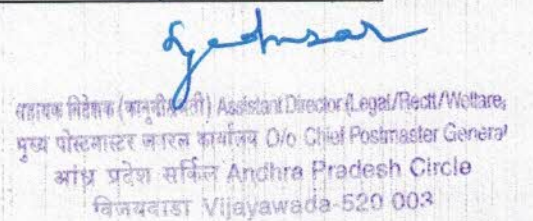 सहायक निदेशक (कानूनी/भर्ती) Assistant Director (Legal/Rectt/Welfare,
मुख्य पोस्टमास्टर जनरल कार्यालय O/o Chief Postmaster General
आंध्र प्रदेश सर्किल Andhra Pradesh Circle
विजयवाडा Vijayawada-520 003